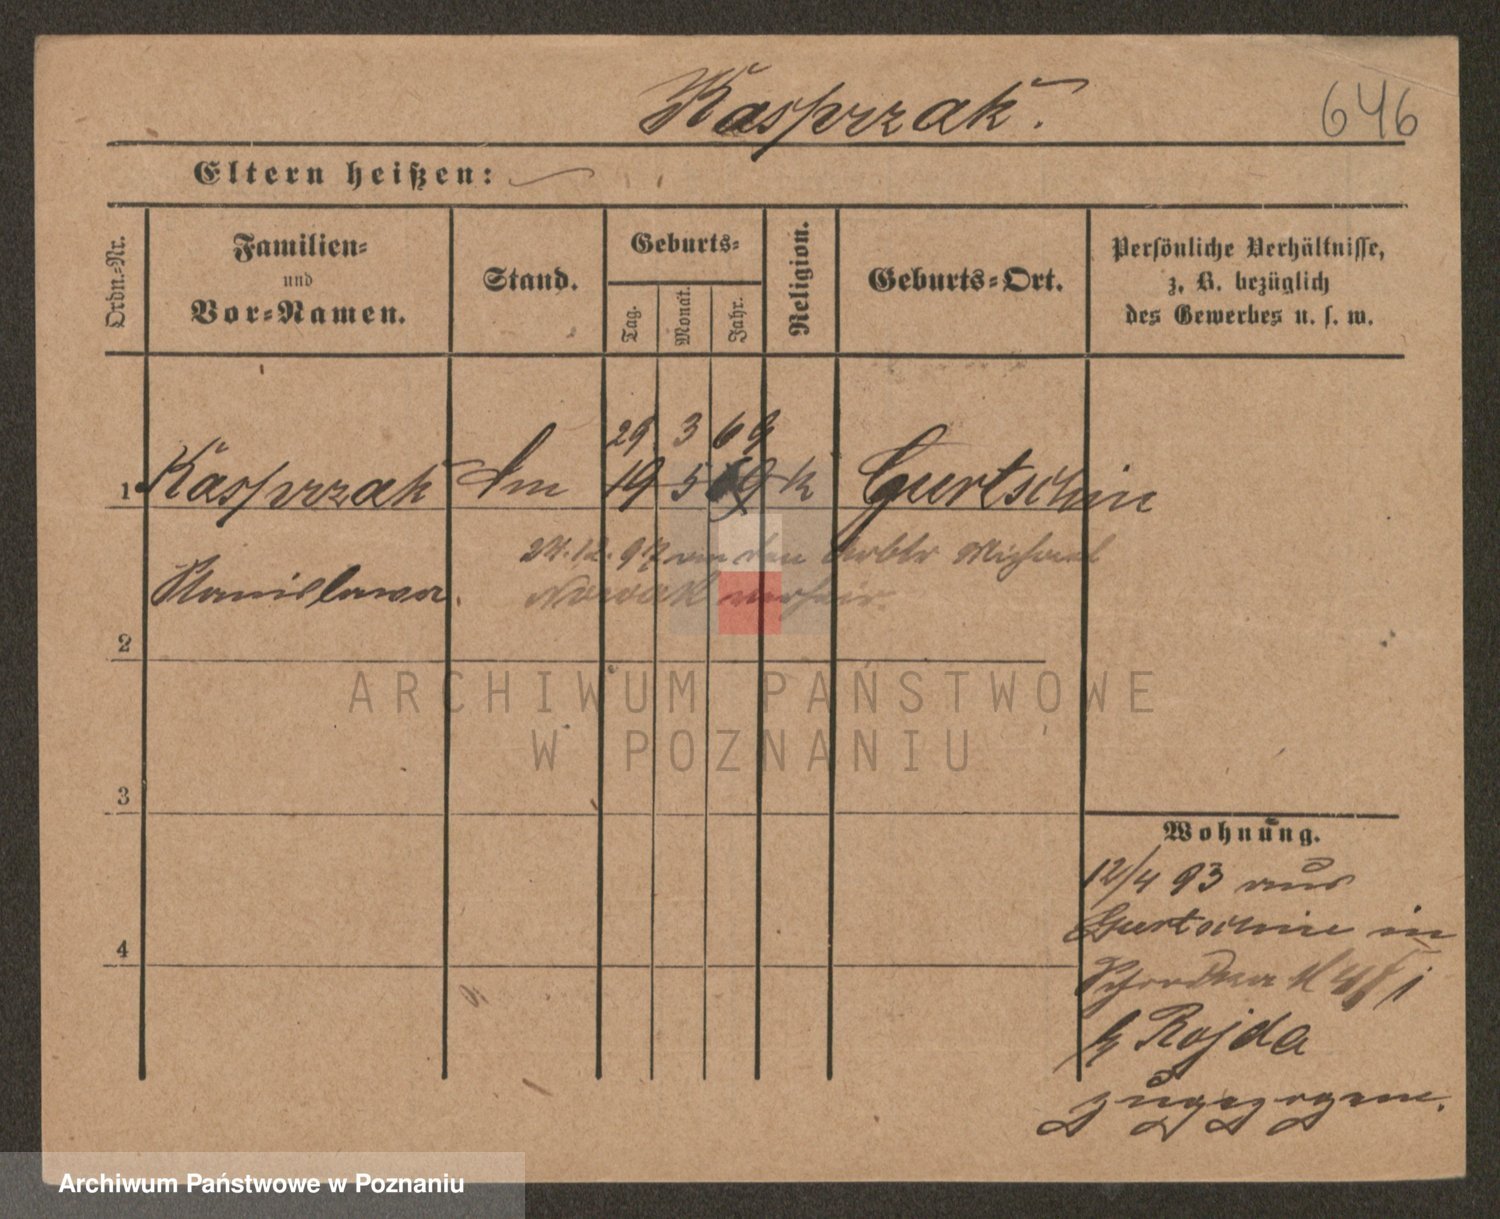 Kasprzak.
646
Eltern heißen:
Ordn.-Nr.
Familien-
und
Vor-Namen.
Stand.
Geburts-
Tag.
Monat.
Jahr.
Religion.
Geburts-Ort.
Persönliche Verhältnisse,
z. B. bezüglich
des Gewerbes u. s. w.
29. 3 69
1 Kasprzak 19 5 69 k Gurtschin
27.12.97 an den Arbtr Michael
Stanislawa.
Nowak verheir.
2
ARCHIWUM PAŃSTWOWE
W POZNANIU
3
Wohnung.
12/4 93 aus
Gurtschin in
4
b Rojda
zugezogen.
Archiwum Państwowe w Poznaniu